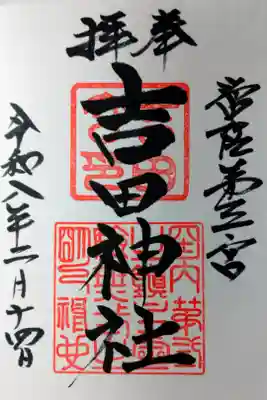 奉拝
常陸第三宮
吉田神社
令和八年二月十四日